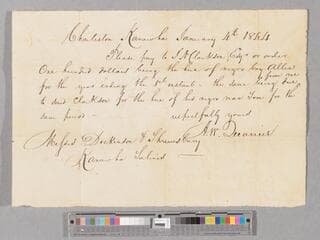 Charleston Kanawha January 4th 1844
Please pay to J. A. Clarkson Esqr or order
One hundred dollars being the hire of negro boy Allen
for the year ending the 25th ultimt - the same being due
from me
to said Clarkson for the hire of his negro man Tom for the
same period - respectfully yours
A. W. Quarrier
Messrs Dickinson & Shrewsbury
Kanawha Salines